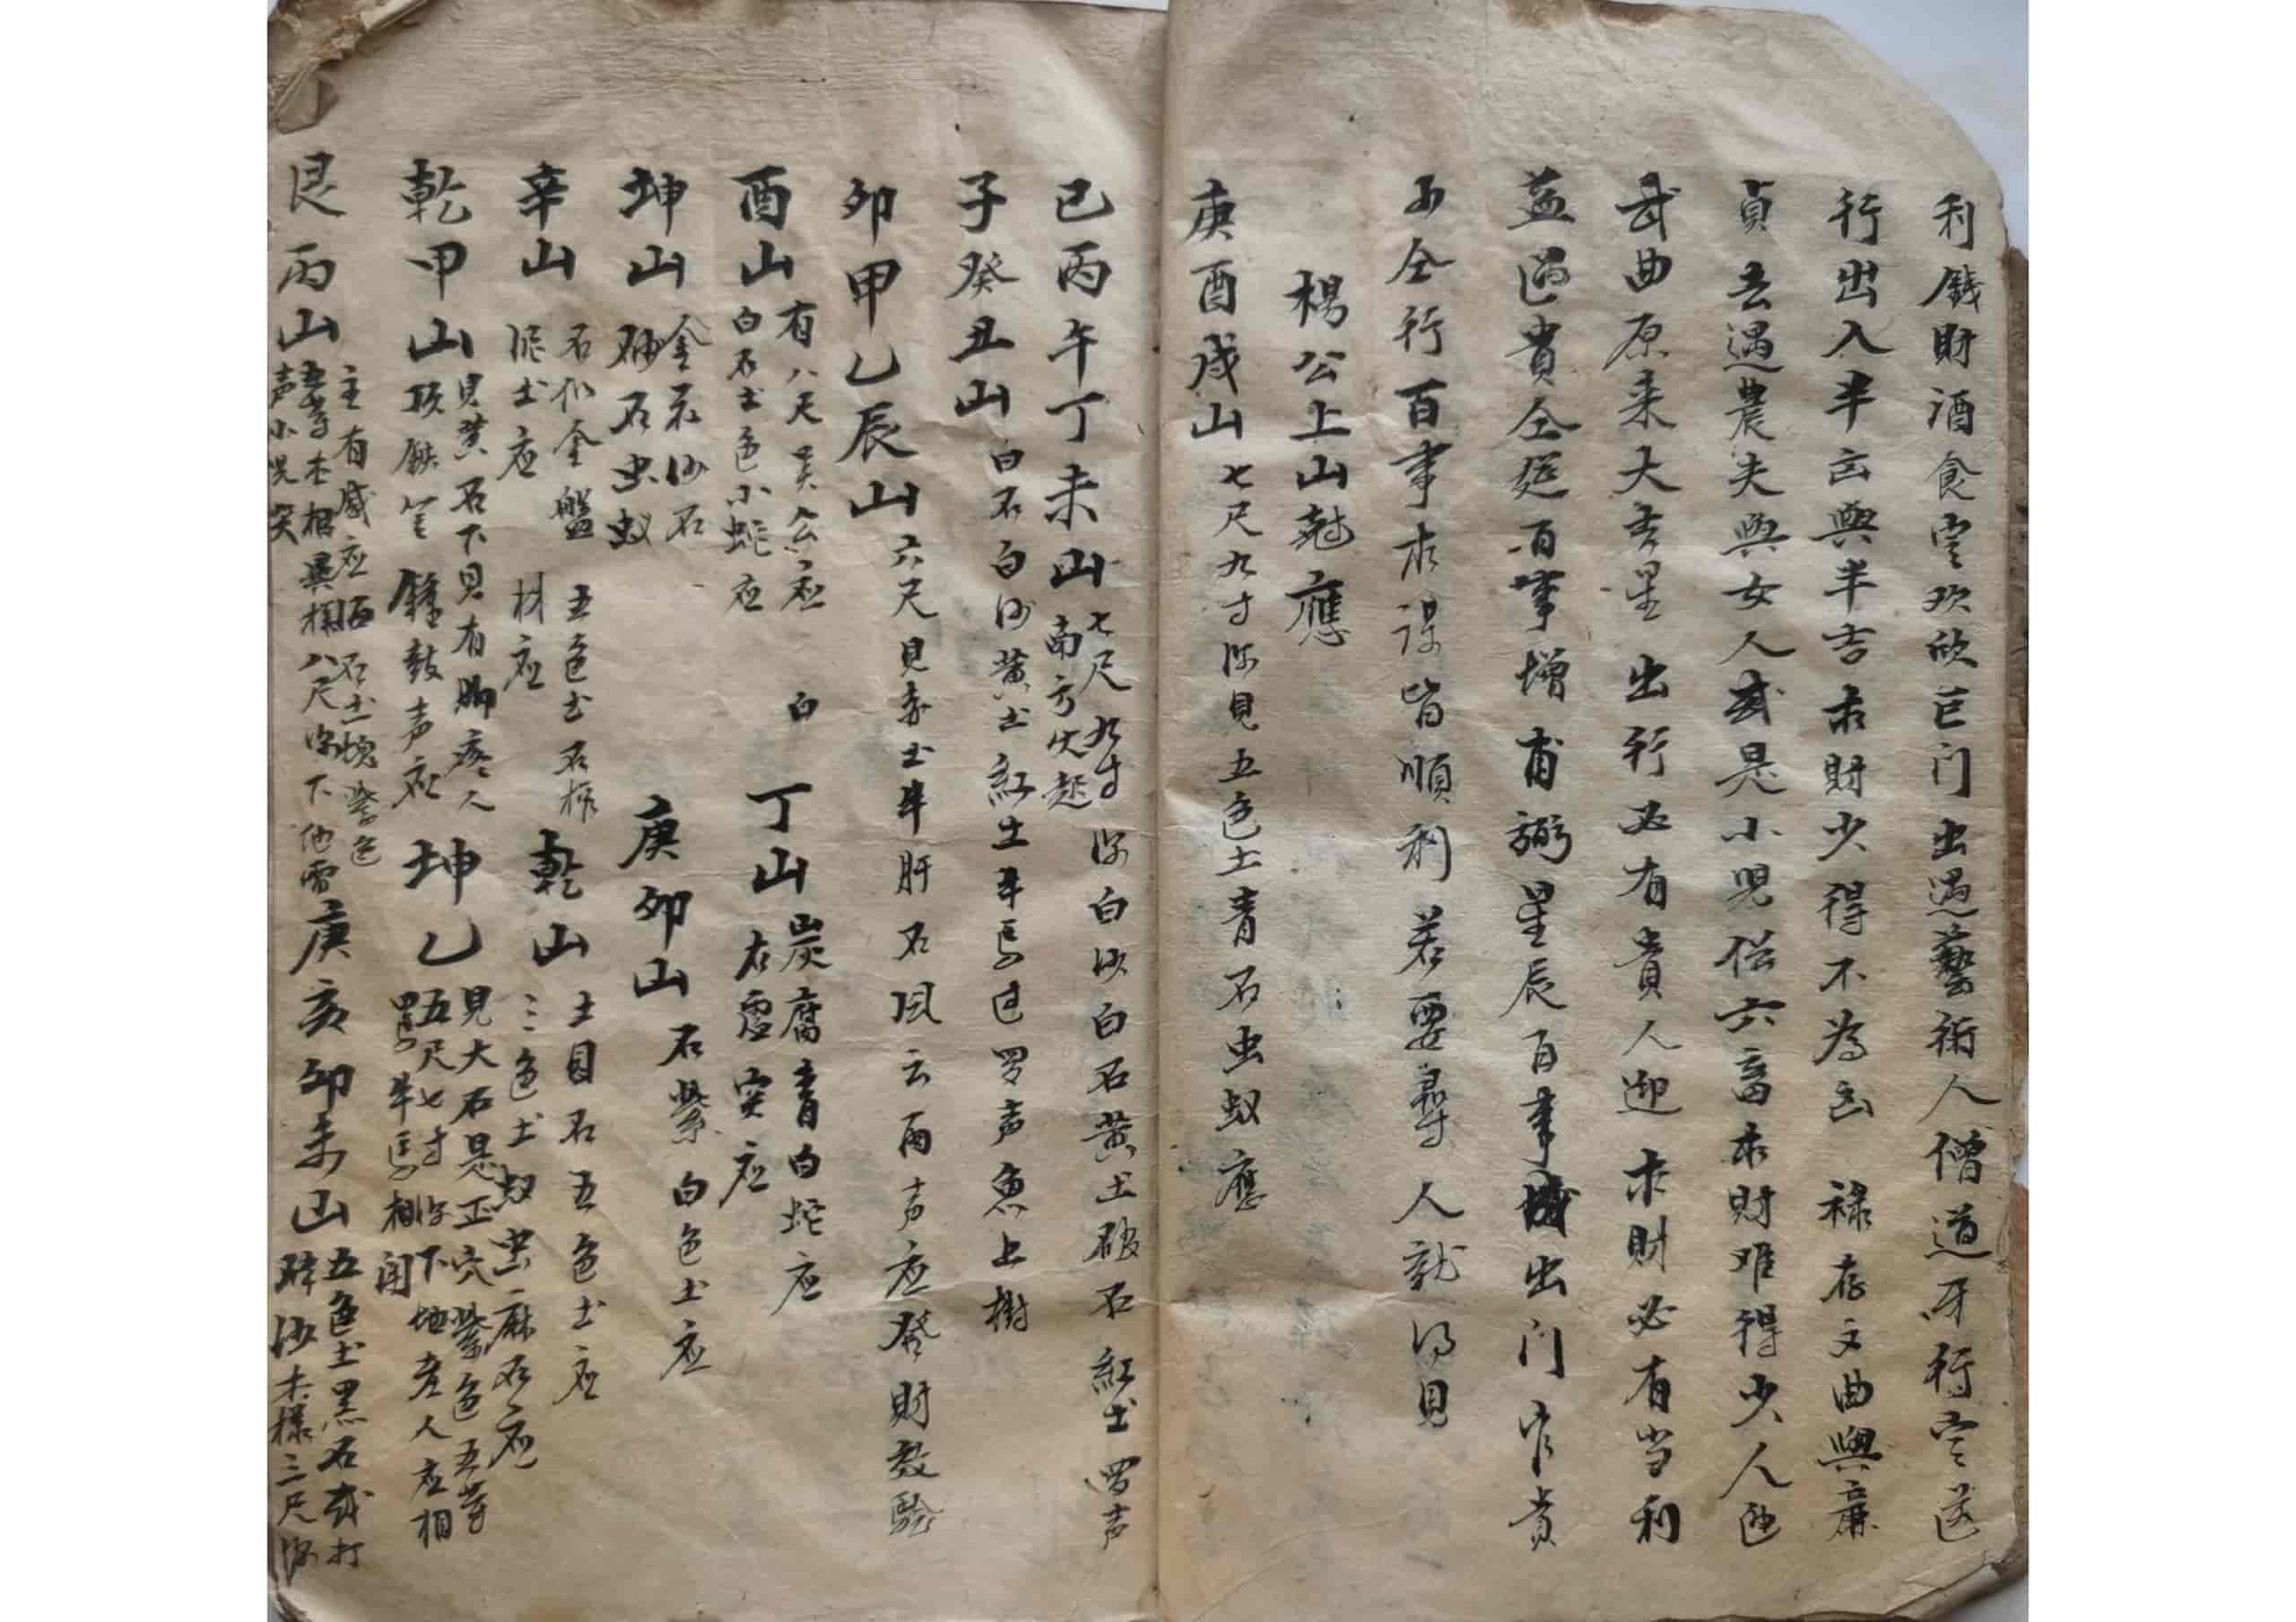 利錢財酒食定欢欣巨门出遇藝術人僧道牙行定送
行出入半凶與半吉求財少得不為凶 禄存文曲與廉
貞去遇農夫與女人或是小児俗六畜求財难得少人
武曲原来大吉星出行必有貴人迎求財必有当利
益遇貴仝筵百事增甫弼星辰百事成出门官貴
仝行百事求谋皆順利若要尋人就得見
楊公上山尅應
庚酉戌山七尺九寸深見五色土青石虫蚁應
巳丙午丁未山七尺九寸深白沙白石黄土破石紅土罗声
南方火起
子癸丑山白石白沙黄土紅土牛馬过罗声魚上樹
卯甲乙辰山六尺見赤土牛肝石风云雨声应發財教驗
酉山有八尺吴公应 白
白石土色小蛇应
丁山炭腐青白蛇应
右虚突应
坤山金衣沙石
砂石虫蚁
庚卯山石紫白色土应
辛山石似金盤 五色土石棺
泥土应 材应
乾山土目石五色土应
三色土蚁虫麻石应
乾甲山見黄石下見有脚疼人
頂鉄 鑼鼓声应
坤乙見大石是正穴紫色五等
五尺七寸深下地産人应相
罵牛馬相闹
艮丙山主有感应 石土塊紫色
木根 八尺深下
声小児哭
庚亥卯未山五色土黑石或打
碎沙木樣三尺深